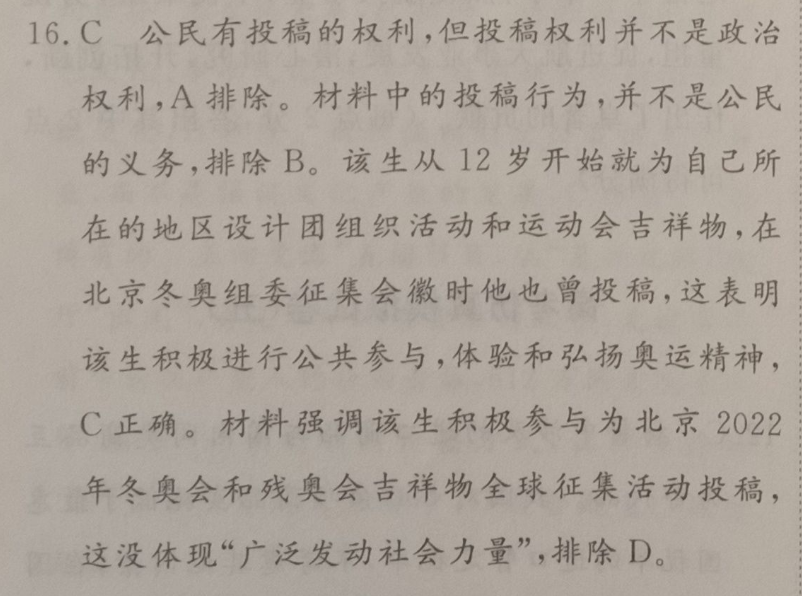 16. C 公民有投稿的权利,但投稿权利并不是政治
权利,A 排除。材料中的投稿行为,并不是公民
的义务,排除 B。该生从 12 岁开始就为自己所
在的地区设计团组织活动和运动会吉祥物,在
北京冬奥组委征集会徽时他也曾投稿,这表明
该生积极进行公共参与,体验和弘扬奥运精神,
C 正确。材料强调该生积极参与为北京 2022
年冬奥会和残奥会吉祥物全球征集活动投稿,
这没体现“广泛发动社会力量”,排除 D。